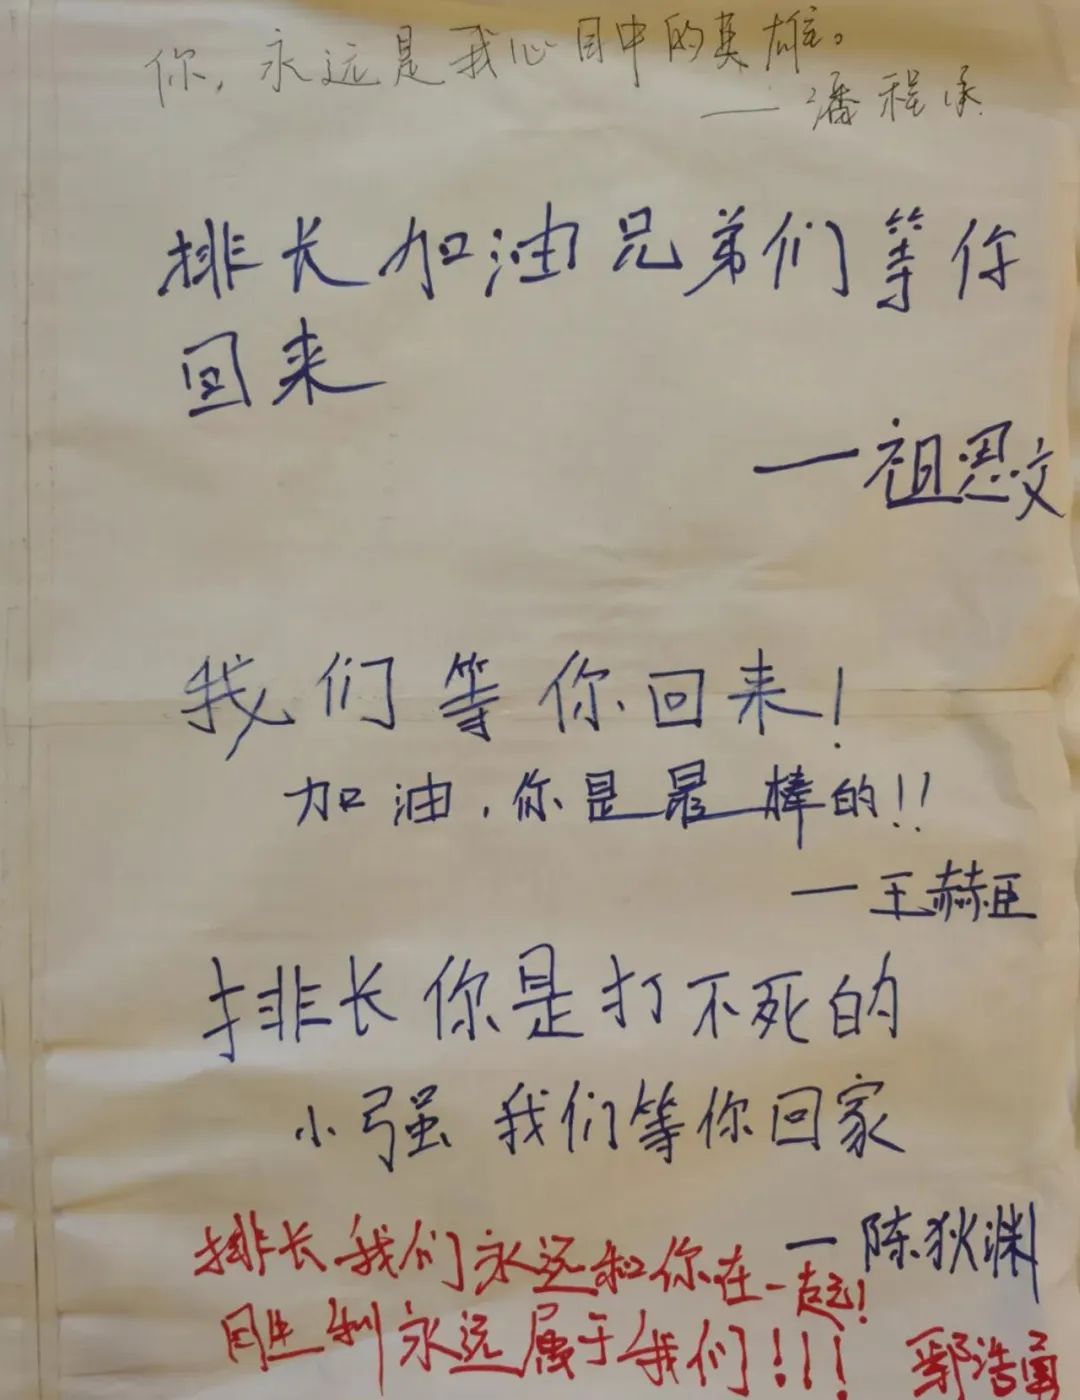 你,永远是我心目中的英雄。
——潘程承
排长加油兄弟们等你
回来
—祖恩文
我们等你回来!
加油,你是最棒的!!
—王赫臣
排长你是打不死的
小强 我们等你回家
—陈狄渊
排长我们永远和你在一起!
胜利永远属于我们!!!
鄢浩勇